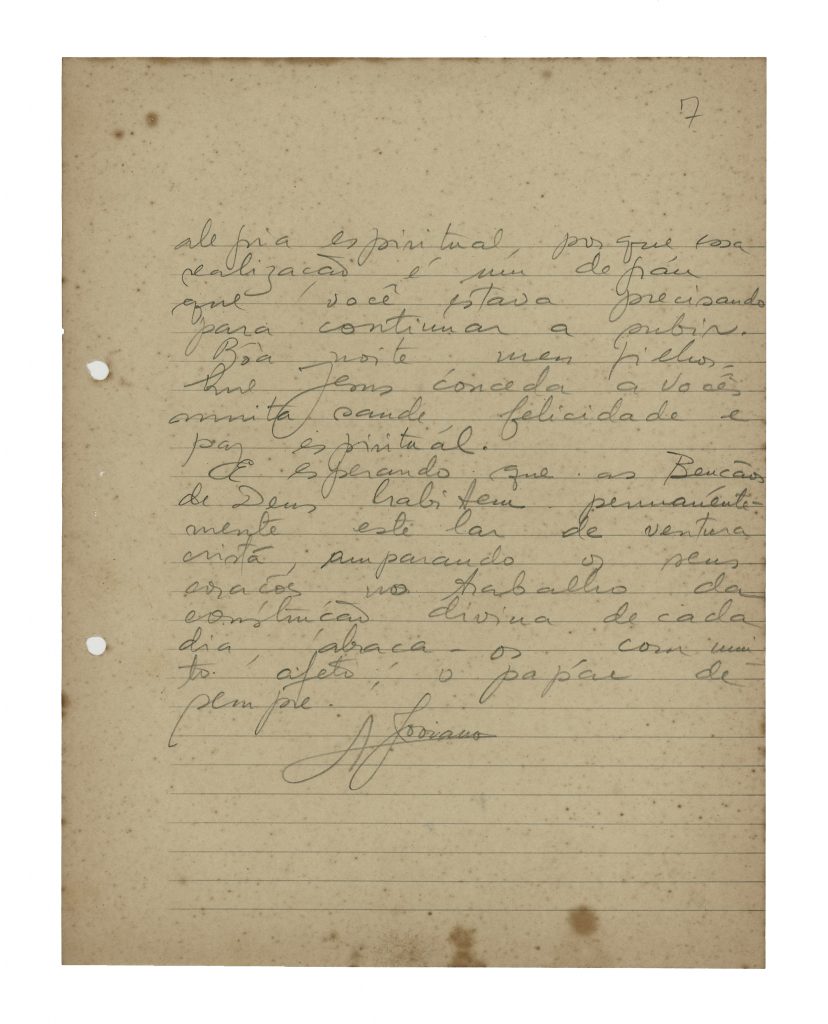 7
alegria espiritual, porque essa
realização é um degráu
que você estava precisando
para continuar a subir.
Bôa noite meus filhos.
Que Jesus conceda a vocês
muita saude felicidade e
paz espirituál.
E esperando que as Bençãos
de Deus habitem permanénte-
mente este lar de ventura
cristã, amparando os seus
corações no trabalho da
construção divina de cada
dia, abraça-os com mui
to afeto, o papáe de
sempre.